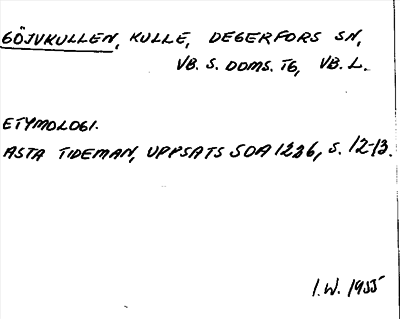 GÖJVKULLEN, KULLE, DEGERFORS SN,
VB. S. DOMS. TG, VB. L.
ETYMOLOGI.
ASTA TIDEMAN, UPPSATS SOA 1236, S. 12-13.
I.W. 1955